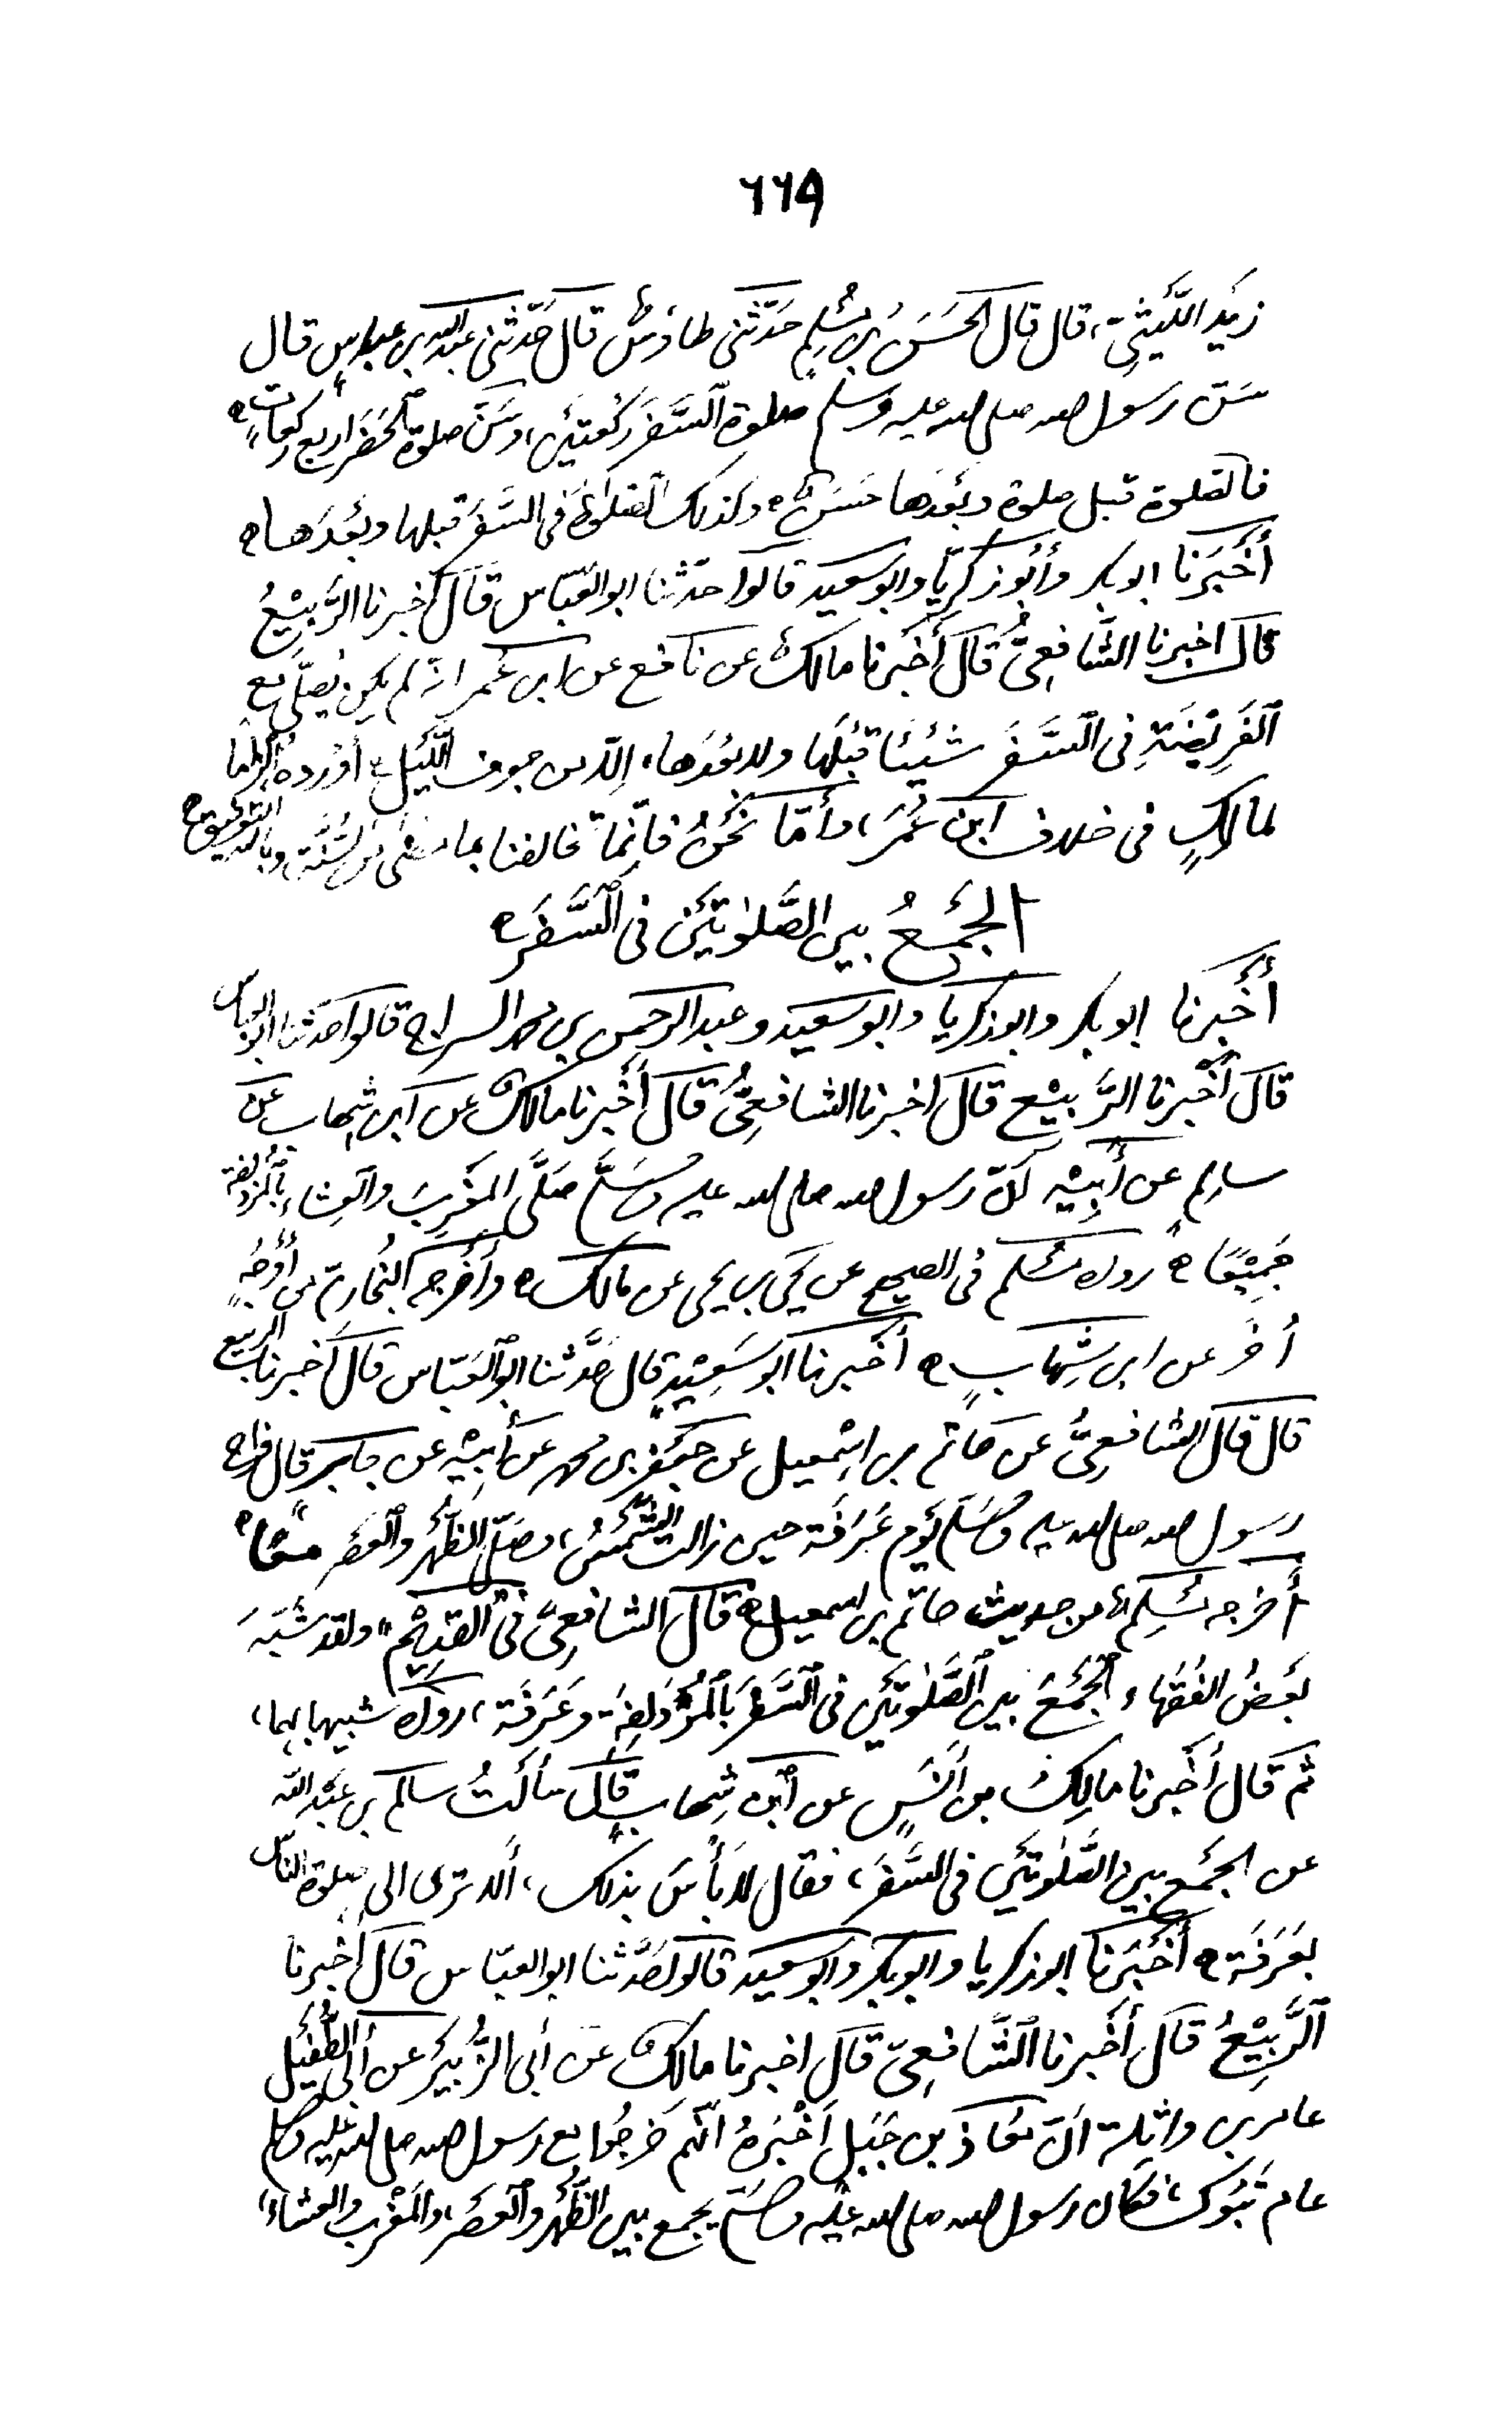 ٦٦٩
زيد الليثي، قال قال الحسن بن مسلم حدثني طاوس قال حدثني عبد الله بن عباس قال
سن رسول الله صلى الله عليه وسلم صلوة السفر ركعتين، وسن صلوة الحضر اربع ركعات
فالصلوة قبل صلوة وبعدها حسن وكذلك الصلوة في السفر قبلها وبعدها
أخبرنا ابو بكر وأبو زكريا وابو سعيد قالوا حدثنا ابو العباس قال أخبرنا الربيع
قال اخبرنا الشافعي قال أخبرنا مالك عن نافع عن ابن عمر انه لم يكن يصلى مع
الفريضة في السفر شيئا قبلها ولا بعدها، إلا من جوف الليل أورده إلزاما
لمالك في خلاف ابن عمر، وأما نحن فإنما خالفنا بما مضى من السنة وبالله التوفيق
الجمع بين الصلوتين في السفر
أخبرنا ابو بكر وابو زكريا وابو سعيد وعبد الرحمن بن محمد السراج قالوا حدثنا ابو العباس
قال أخبرنا الربيع قال اخبرنا الشافعي قال أخبرنا مالك عن ابن شهاب عن
سالم عن أبيه أن رسول الله صلى الله عليه وسلم صلى المغرب والعشاء بالمزدلفة
جميعا رواه مسلم في الصحيح عن يحيى بن يحيى عن مالك وأخرجه البخاري من أوجه
أخر عن ابن شهاب أخبرنا ابو سعيد قال حدثنا ابو العباس قال أخبرنا الربيع
قال قال الشافعي عن حاتم بن إسمعيل عن جعفر بن محمد عن أبيه عن جابر قال فراح
رسول الله صلى الله عليه وسلم يوم عرفة حين زالت الشمس، فصلى الظهر والعصر معا
أخرجه مسلم من حديث حاتم بن اسمعيل قال الشافعي في القديم ولقد شبه
بعض الفقهاء الجمع بين الصلوتين في السفر بالمزدلفة وعرفة، رواه شبيها بهما،
ثم قال أخبرنا مالك بن أنس عن ابن شهاب قال سألت سالم بن عبد الله
عن الجمع بين الصلوتين في السفر، فقال لا بأس بذلك، ألا ترى الى صلوة الناس
بعرفة أخبرنا ابو زكريا وابو بكر وابو سعيد قالوا حدثنا ابو العباس قال أخبرنا
الربيع قال أخبرنا الشافعي قال اخبرنا مالك عن أبي الزبير عن أبي الطفيل
عامر بن واثلة أن معاذ بن جبل أخبره انهم خرجوا مع رسول الله صلى الله عليه وسلم
عام تبوك، فكان رسول الله صلى الله عليه وسلم يجمع بين الظهر والعصر، والمغرب والعشاء،